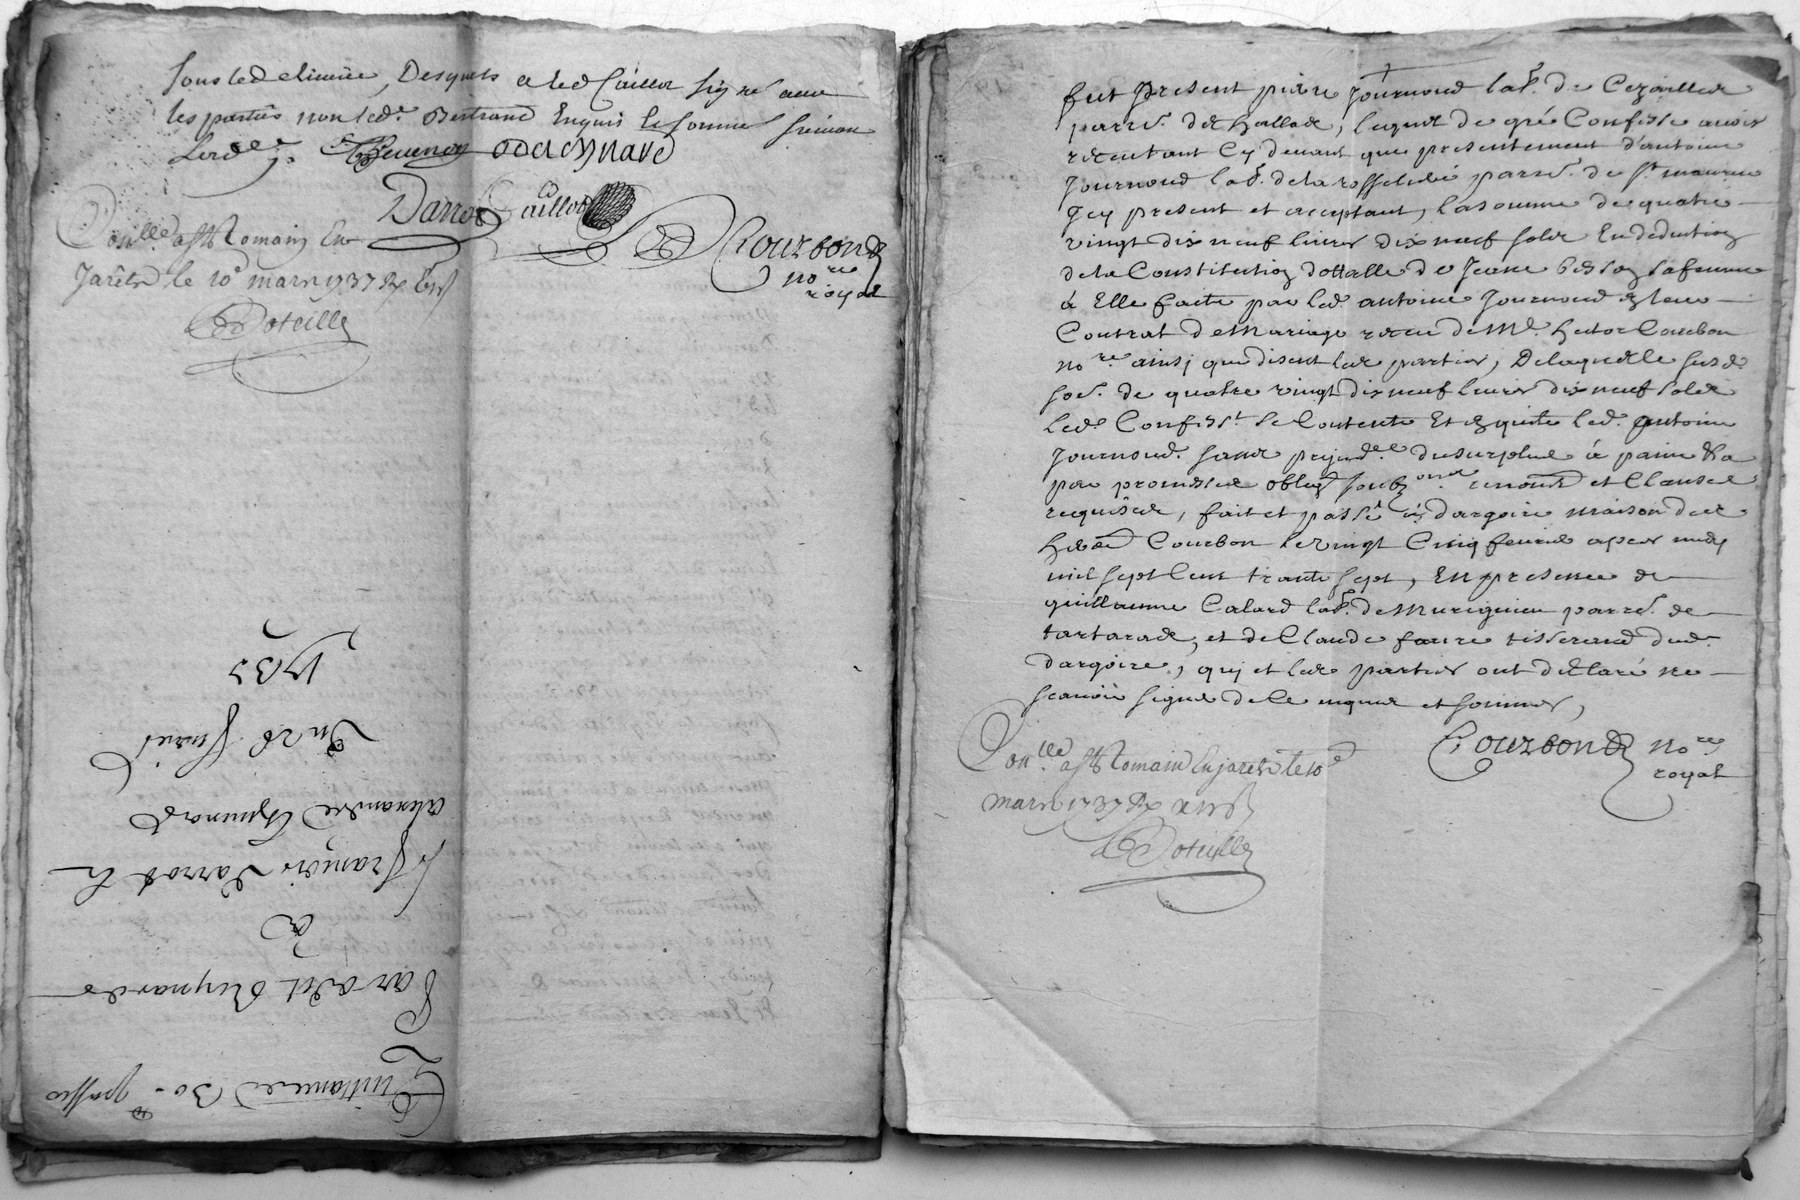 sousled climene, Desquels a led Caillot signé avec
les parties non led. Bertrand Enquis et sommé
Thevenon ODE REYNAVD
Darrot Caillot
Courbon
no.re
royal
Con.lle a St Romain En
Jarêts le 10e mars 1737
Boteille
Quittance 30
Par odet Reynaud
a
sr françois Darrot et
alexandre
Du 26 fevrier
1737
fut present pierre Journoud lab.r de Cezailles
parr.e de hallas, lequel de gré Confesse avoir
receu tant cy devant que presentement d'antoine
Journoud lab.r de la rosseliere parr.e de st maurice
Icy present et acceptant, la somme de quatre
vingt dix neuf livres dix neuf solz En deduction
de la Constitution dottalle de Jeane besson sa femme
á Elle faite par led. antoine Journoud En leur
Contrat de Mariage receu de Me. hector Courbon
no.re ainsj que disent les parties, De laquelle susd.
so.e de quatre vingt dix neuf livres dix neuf solz
led. Confess.t se Contente Et En quitte led. antoine
Journoud. sans prejud.ce du surplus á paine &a
par promesses oblig.on soub.ons renon.ons et Clauses
requises, fait et passé á dargoire maison des
her.s Courbon le vingt Cinq fevrier apres midy
mil sept Cent trante sept, En presence de
guillaume Calard lab.r de Murigneu parr.e de
tartaras, et de Claude faure tisserand dud.
dargoire, quj et les parties ont déclaré ne
scavoir signer de ce enquis et sommés,
Courbon no.re
royal
Con.lle a St Romain En jarets le 10e
mars 1737
Boteille